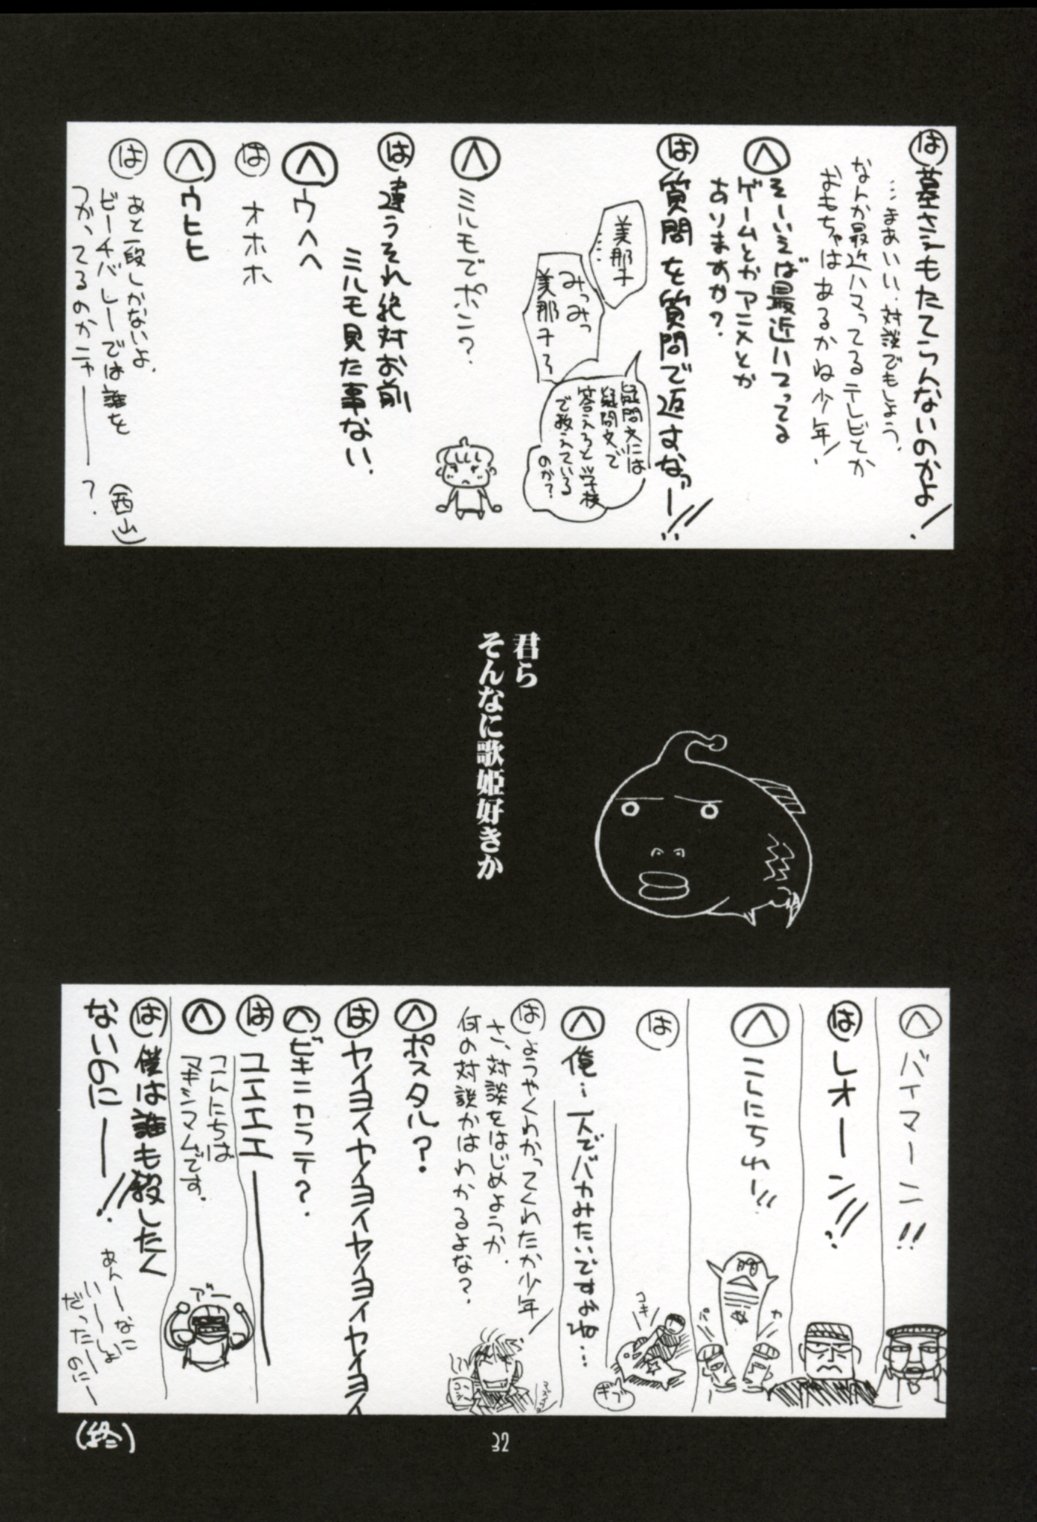 は 墓さえもたてらんないのかよ!
…まあいい、対談でもしよう、
なんか最近ハマってるテレビとか
おもちゃはあるかね少年!
へ そーいえば最近ハマってる
ゲームとかアニメとか
ありますか?
は 質問を質問で返すなーッ!!
美那子…
みっみっ
美那子ぅ
疑問文には
疑問文で
答えろと学校
で教えている
のか?
へ ミルモでポン?
は 違うそれ絶対お前
ミルモ見た事ない、
へ ウヘヘ
は オホホ
へ ウヒヒ
は あと一段しかないよ、
ビーチバレーでは誰を
つかってるのかニャ――?
(西山)
君ら
そんなに歌姫好きか
へ バイマーン!!
は レオーン!!
へ こんにちわー!!
パ
カ
は
コキ
ギュ
へ 俺…一人でバカみたいですよね…
は ようやくわかってくれたか少年!
さ、対談をはじめようか、
何の対談かはわかるよな?、
へ ポスタル?
は ヤイヨイヤイヨイヤイヨイヤイヨイ
へ ビキニカラテ?
は ユエエエ――
へ こんにちは
マキシマムです、
は 僕は誰も殺したく
ないのに――!!
あんーなに
いーっしょ
だったーのにー
(終)
32